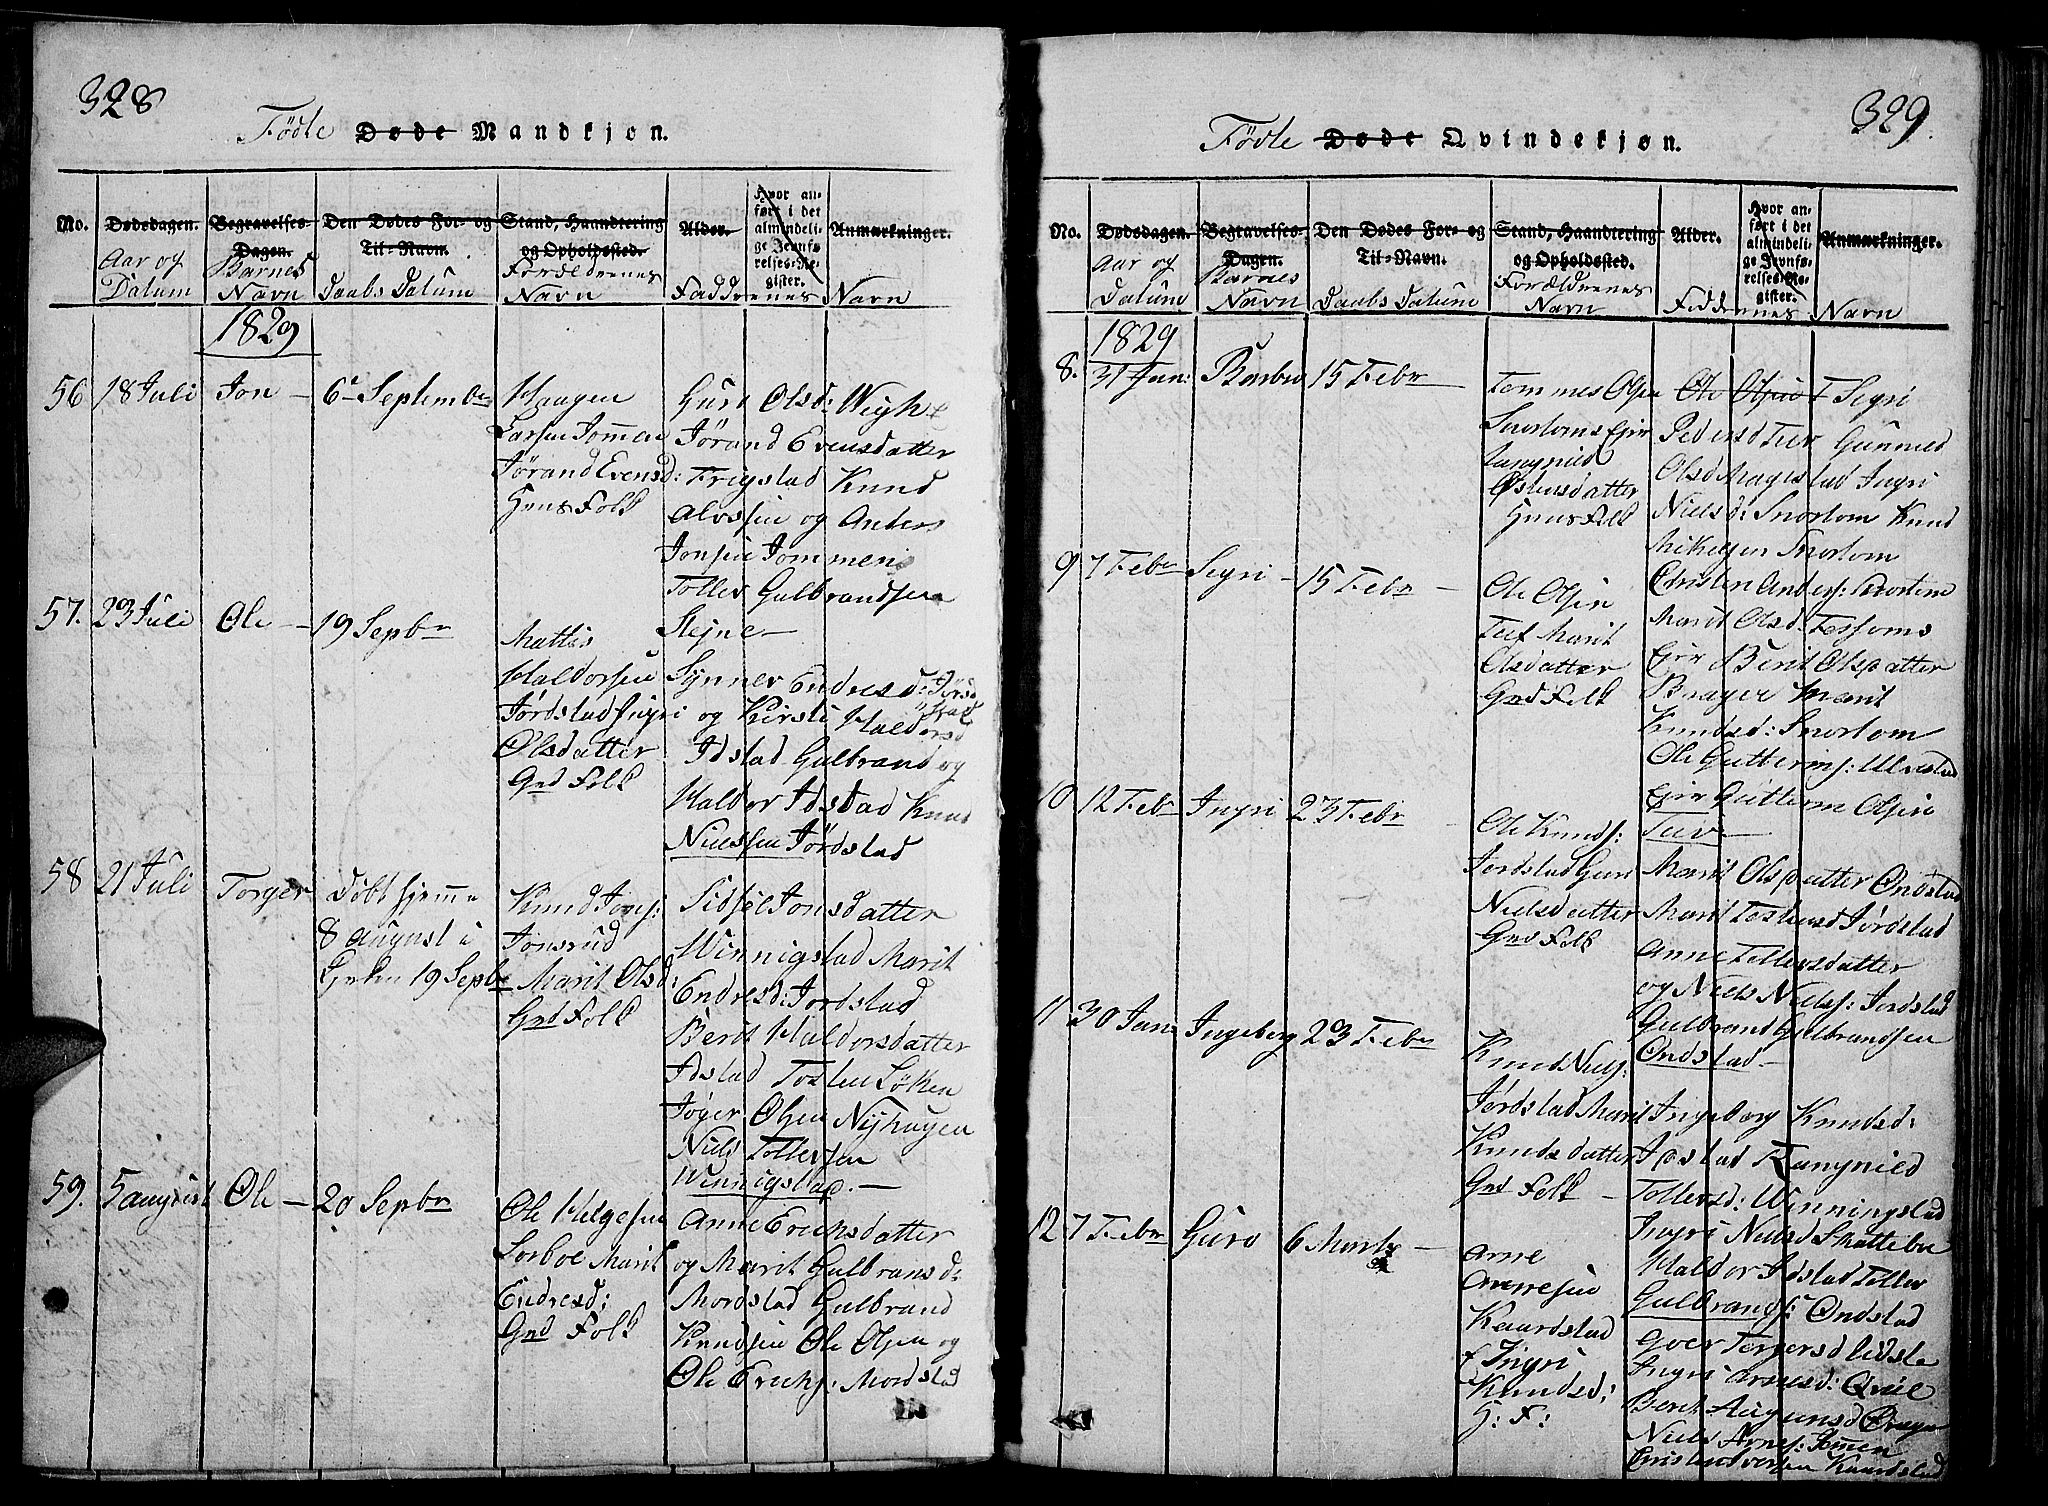 328
Fødte Døde Mandkjøn.
No.
Dødsdagen.
Aar og
Datum
Begravelses-
Dagen.
Barnes
Navn
Den Dødes For- og
Til-Navn.
Daabs Datum
Stand, Haandtering
og Opholdssted.
Forældrenes
Navn
Alder.
Faddrenes
Hvor an-
ført i det
almindeli-
ge Jevnfø-
relses-Re-
gister.
Anmærkninger.
Navn
1829
56 18 Juli Jon - 6te September
Haagen
Larsen Jommen
Jørand Evensd:
Huus Folk
Guro Olsd: Weigh
Jørand Evensdatter
Frigstad Knud
Alvssen og Anders
Jonsen Jommen
Toller Gulbrandsen
Stejne
57. 23 Juli Ole - 19 Sepbr
Mattis
Haldorsen
Jørdstad Ingri
Olsdatter
Grd Folk
Synnev Endresd: Jørd
stad
og Kirsti Haldorsd
Idstad Gulbrand og
Haldor Idstad Knud
Nielssen Jørdstad
58 21 Juli Torger Døbt hjemme
8 August i
Kirken 19 Sepbr
Knud Jons:
Jonsrud
Marit Olsd:
Grd Folk
Sidsel Jonsdatter
Winnigstad Marit
Endresd: Jordstad
Berit Haldorsdatter
Idstad Tosten Løken
Olsen Nÿhaugen
Niels Tollefsen
Winnigstad. -
59. 5 August Ole - 20 Sepbr
Ole Helgesen
Sorboe Marit
Endresd:
Grd Folk
Anne Erichsdatter
og Marit Gulbransd:
Mordstad Gulbrand
Knudsen Ole Olsen og
Ole Erichs: Mordstad
329.
Fødte Døde Qvindekjøn.
No.
Dødsdagen.
Aar og
Datum
Begravelses-
Dagen.
Barnes
Navn
Den Dødes For- og
Til-Navn.
Daabs Datum
Stand, Haandtering
og Opholdssted.
Forældrenes
Navn
Alder.
Faddrenes
Hvor an-
ført i det
almindeli-
ge Jevnfø-
relses-Re-
gister.
Anmærkninger.
Navn
1829
8. 31 Jan: Barbro 15 Febr
Tommes Olsen
Snortoms Ejer
Rangnild
Østensdatter
Huus Folk
Ole Olsen Sigri
Pedersd Tuv Gunnild
Olsd Magestad Ingri
Nielsd: Snortom Knud
Mikelsen Snortom
9 7 Febr Sigri - 15 Febr -
Ole Olsen
Tuf Marit
Olsdatter
Grd Folk
Cristen Anders:
Marit Olsd:
Ejer Berit Olsdatter
Marit
Knudsd: Snortom
Ole Gutterms: Ulvestad
Ejer Guttorm Olsen
Tuv
10 12 Febr Ingri 23 Febr -
Ole Knuds:
Jordstad Guri
Nielsdatter
Grd Folk
Marit Olsdatter Ondstad
Marit Tostensd Jørdstad
Anne Tollersdatter
og Niels Niels: Jordstad
Gulbrand Gulbrandsen
Ondstad -
11 30 Jan Ingeborg 23 Febr
Knud Niels:
Jørdstad Marit
Knudsdatter
Grd Folk -
Ingeborg Knudsd:
Idstad Rangnild
Tollersd: Winningstad
Ingri Nielsd Skattebu
Haldor Idstad Toller
Gulbrands: Ondstad
12 7 Febr Guro 6 Marts -
Arne
Arnesen
Kaardstad
Ingri
Knudsd:
H: F:
Goer Torgersd Lidsle
Ingri Arnesd: Qvile
Berit Augunsd
Niels Arnes: Jommen
Kaardstad